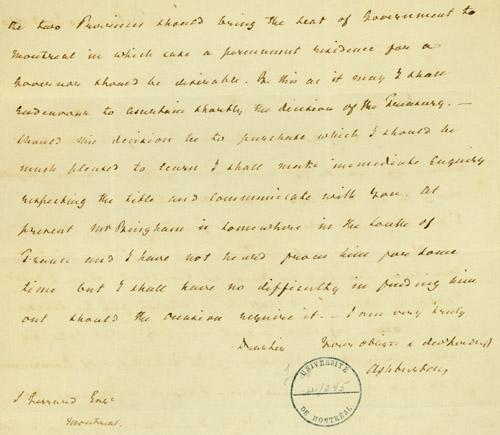 the two Provinces should bring the Seat of Government to
Montreal in which case a permanent residence for a
Governor should be desirable. Be this as it may I shall
endeavour to ascertain shortly the decision of the Treasury. —
Should this decision be to purchase which I should be
much pleased to learn I shall make immediate enquiry
respecting the title and communicate with you. At
present Mr Bingham is somewhere in the South of
France and I have not heard from him for some
time but I shall have no difficulty in finding him
out should the occasion require it. — I am very truly
Dear Sir Your obedt &
Ashburton
J Ferraud Esqr
Montreal.
UNIVERSITÉ
DE MONTRÉAL